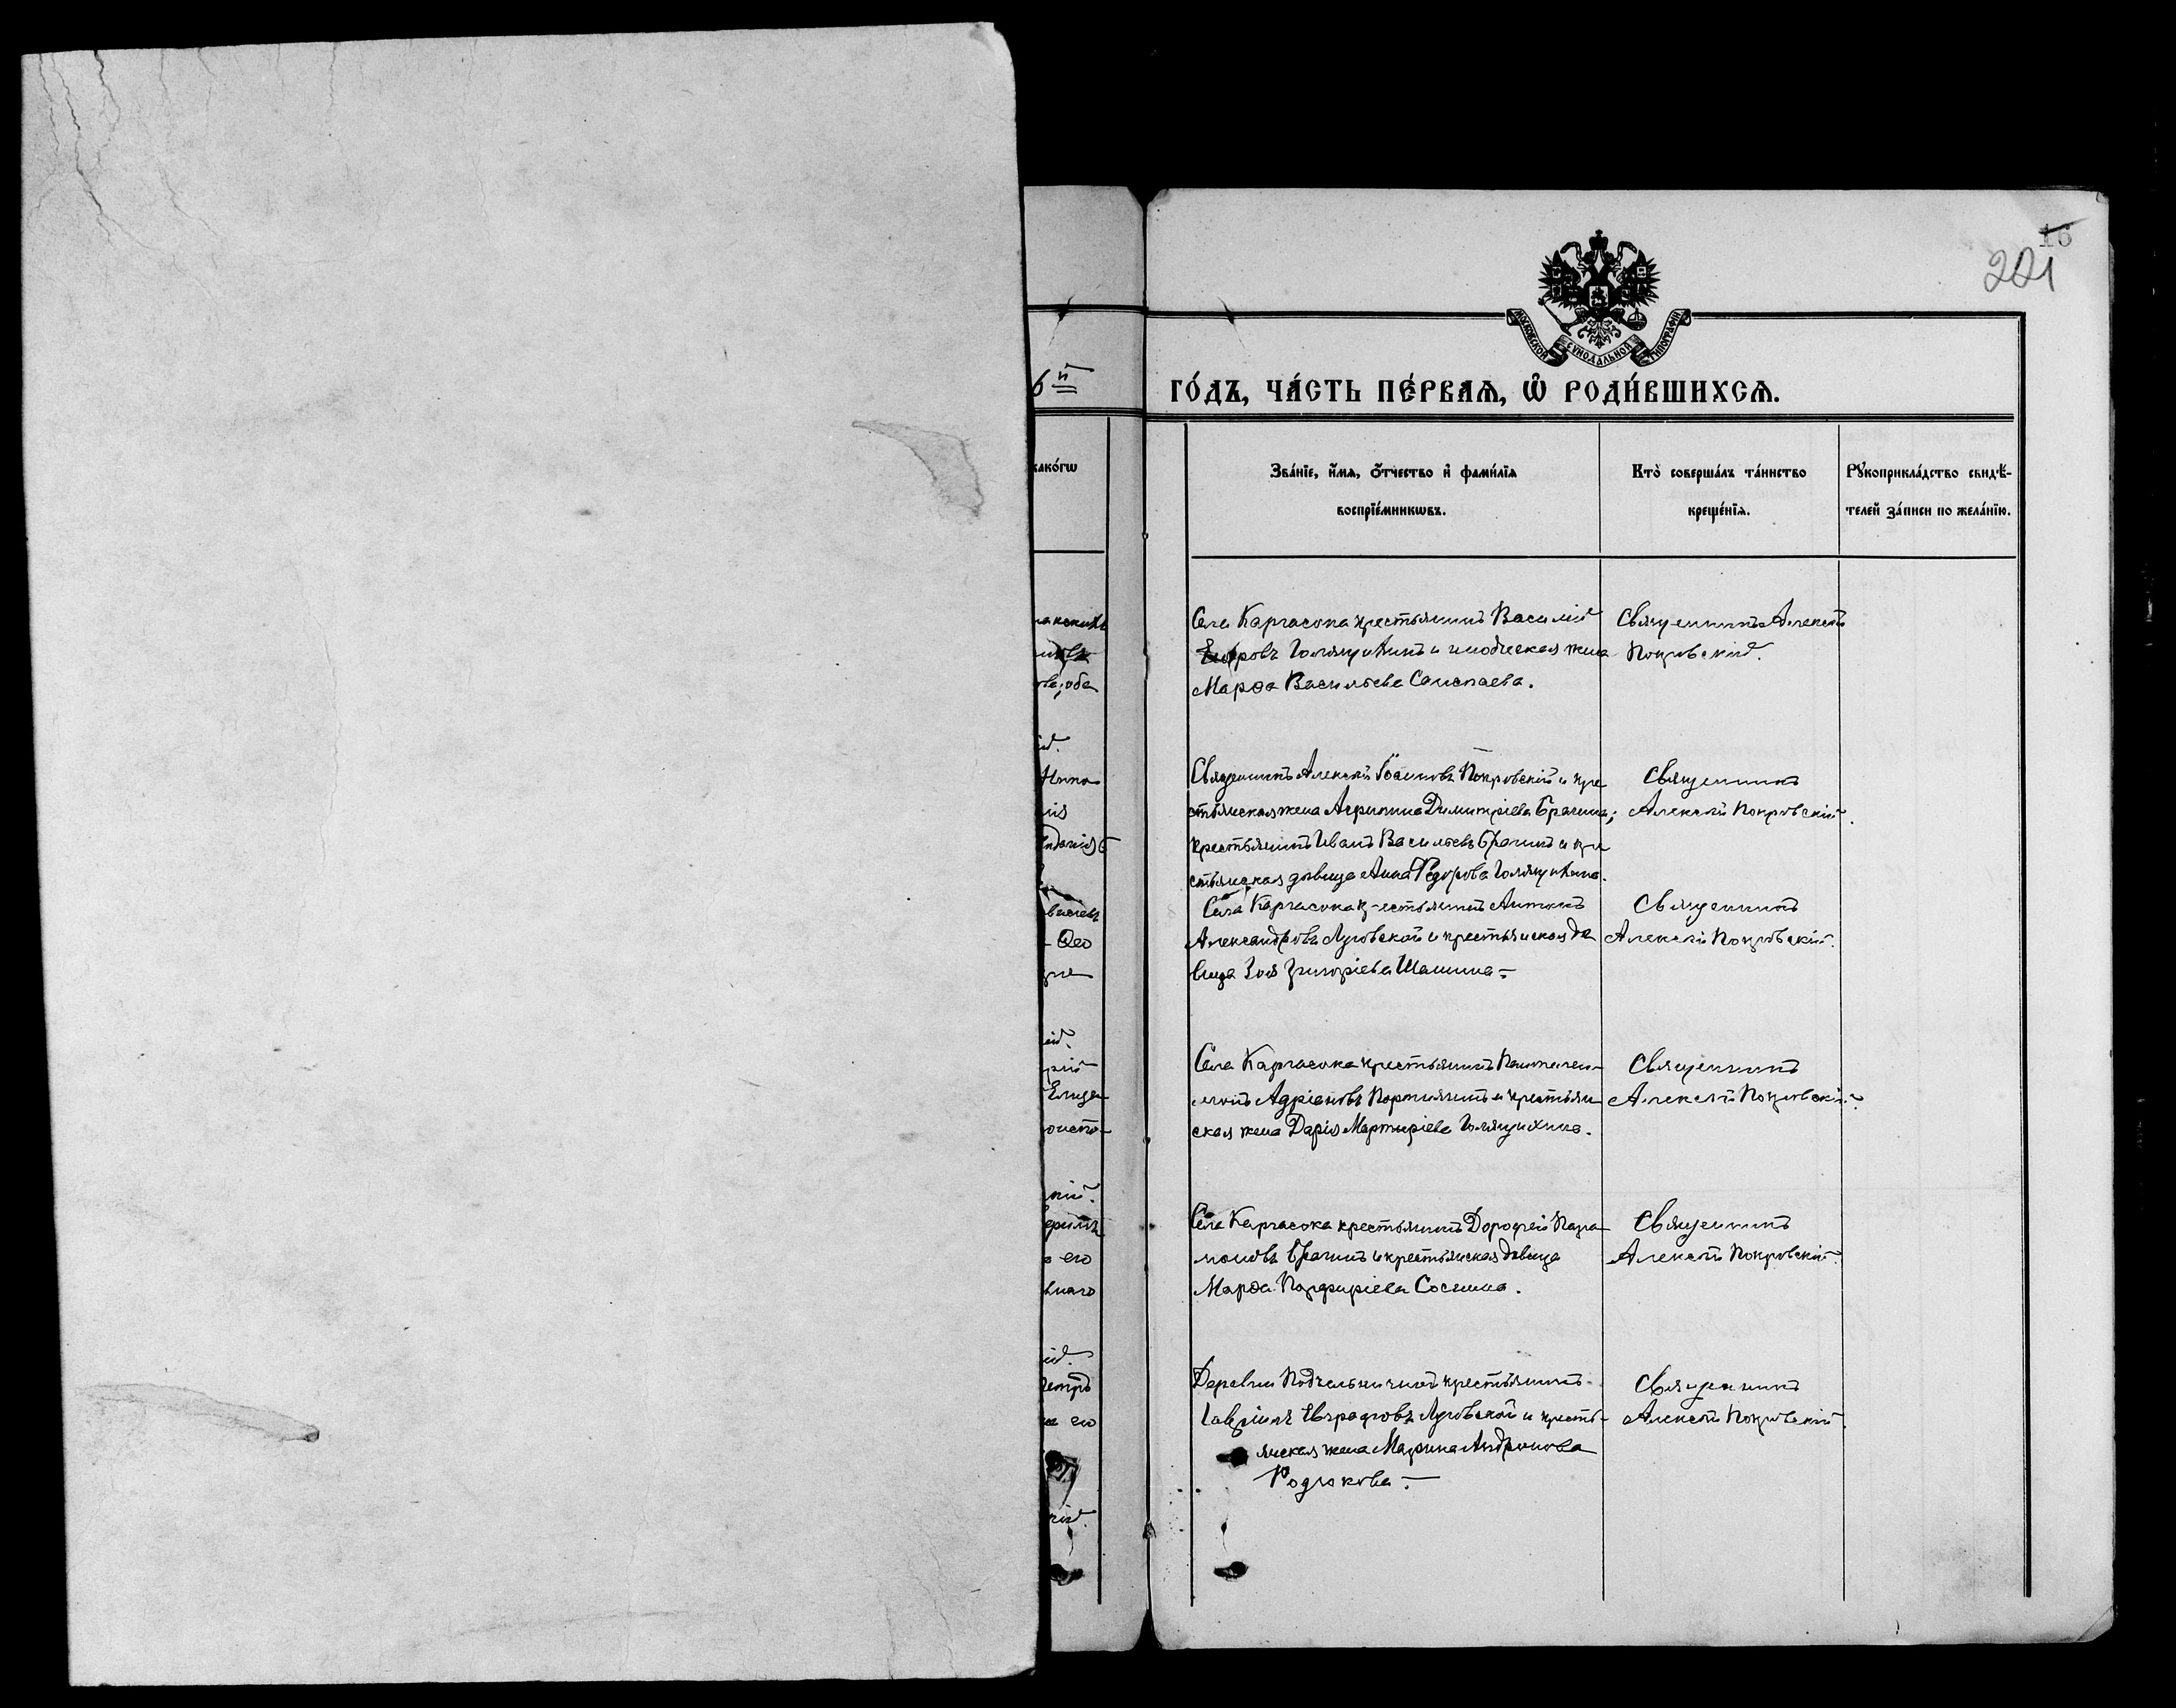 16
221
МОСКОВСКОЙ СУНОДАЛЬНОЙ ТИПОГРАФІИ
6й
ГО́ДЪ, ЧА́СТЬ ПЕ́РВАѦ, Ѿ РОДИ́ВШИХСѦ.
какѡ́гѡ
Зва́нїе, и҆́мѧ, ѻ҆́тчество и҆ фами́лїѧ
воспрїе́мникѡвъ.
Кто̀ соверша́лъ та́инство
креще́нїѧ.
Рꙋкоприкла́дство свидѣ́-
телей за́писи по жела́нїю.
Села Каргасока крестьянинъ Василій
Егоровъ Голящихинъ и инодческая жена
Марѳа Васильева Сашпаева.
Священникъ Алексѣй
Покровскій.
Священникъ Алексѣй Іоанновъ Покровскій и кре
стьянская жена Агрипина Димитріева Брагина;
крестьянинъ Иванъ Васильевъ Брагинъ и кре
стьянская дѣвица Анна Ѳедорова Голящихина.
Священникъ
Алексѣй Покровскій.
Села Каргасока крестьянинъ Антонъ
Александровъ Луговской и крестьянская дѣ
вица Зоя Григоріева Шашина.
Священникъ
Алексѣй Покровскій.
Села Каргасока крестьянинъ Пантелеи-
монъ Адріановъ Портнянинъ и крестьян
ская жена Дарія Мартиріева Голящихина.
Священникъ
Алексѣй Покровскій.
Села Каргасока крестьянинъ Дорофей Пара-
моновъ Брагинъ и крестьянская дѣвица
Марѳа Порфиріева Соснина.
Священникъ
Алексѣй Покровскій.
Деревни Подъельничной крестьянинъ
Гавріилъ Евграфовъ Луговской и кресть-
янская жена Марина Андронова
Родюкова.
Священникъ
Алексѣй Покровскій.